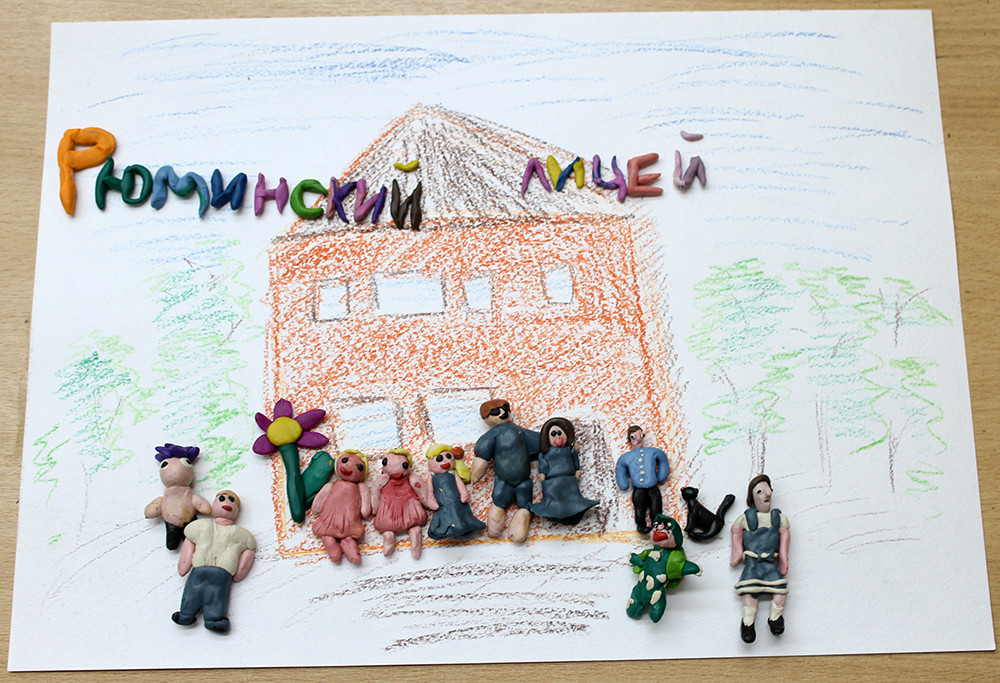 Рюминский лицей